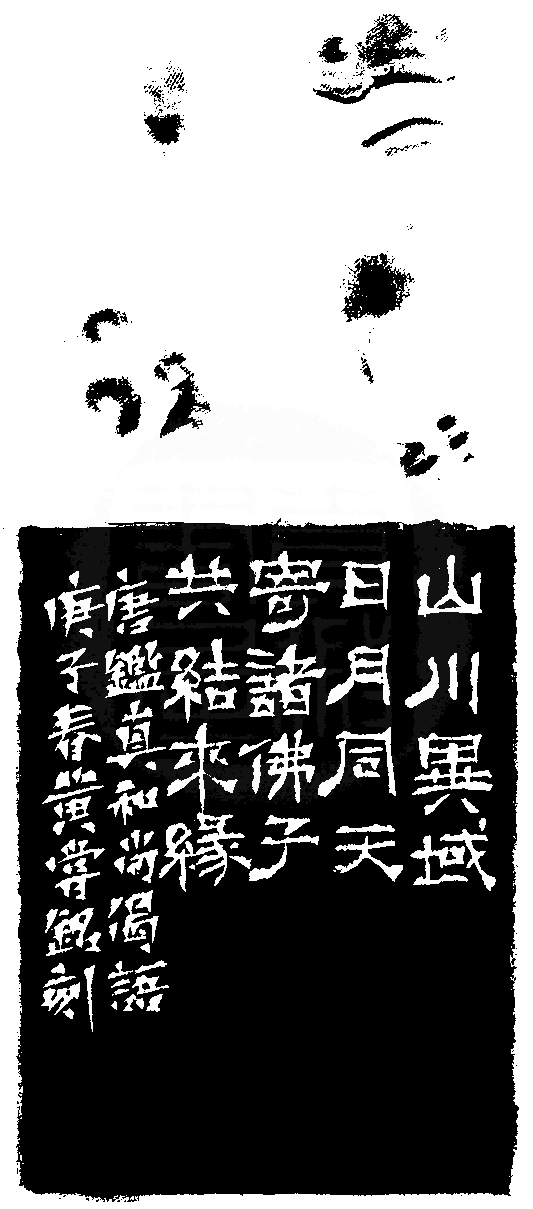 山川異域
日月同天
寄諸佛子
共結來緣
唐鑑真和尚偈語
庚子春黃嘗銘刻